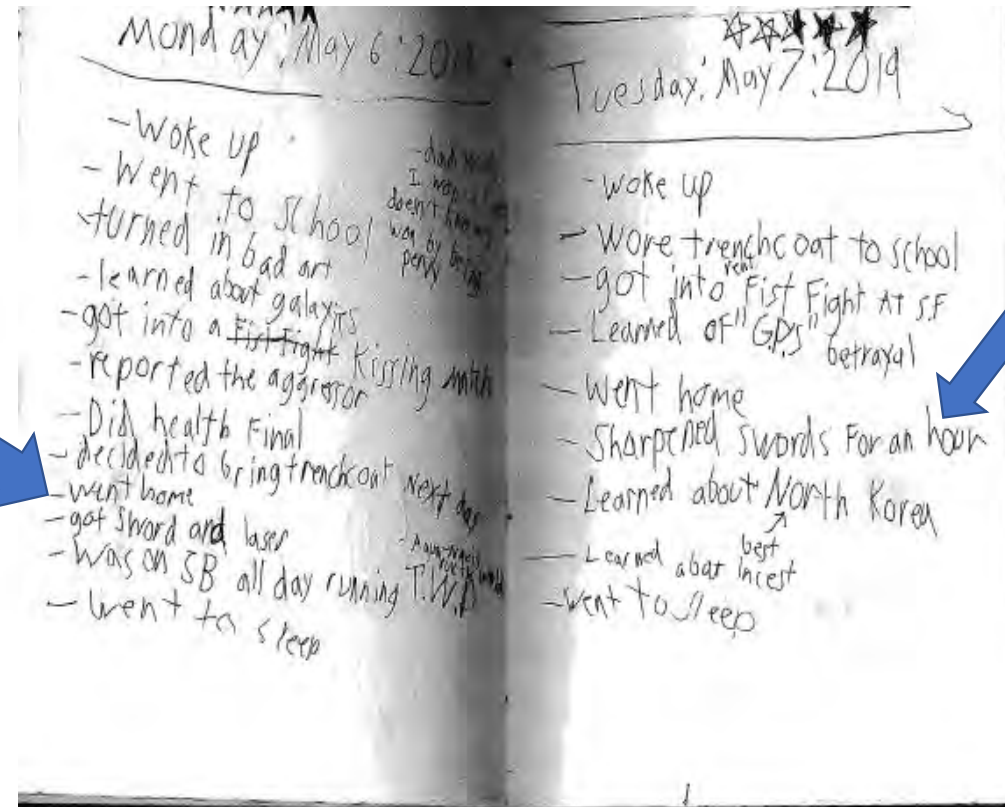 Monday; May 6; 2019
-Woke up
-Went to school
-turned in bad art
-learned about galaxys
-got into a Fist Fight Kissing match
-reported the aggressor
-Did health Final
-decided to bring trenchcoat next day
-went home
-got sword and laser
-Was on SB all day running T.W.D
-went to sleep
I
doesn't
by being
Tuesday; May 7; 2019
-woke up
-Wore trenchcoat to school
real
-got into Fist Fight AT S.F
-Learned of "G.P.s" betrayal
-Went home
-Sharpened swords For an hour
-Learned about North Korea
best
-Learned about incest
-went to sleep